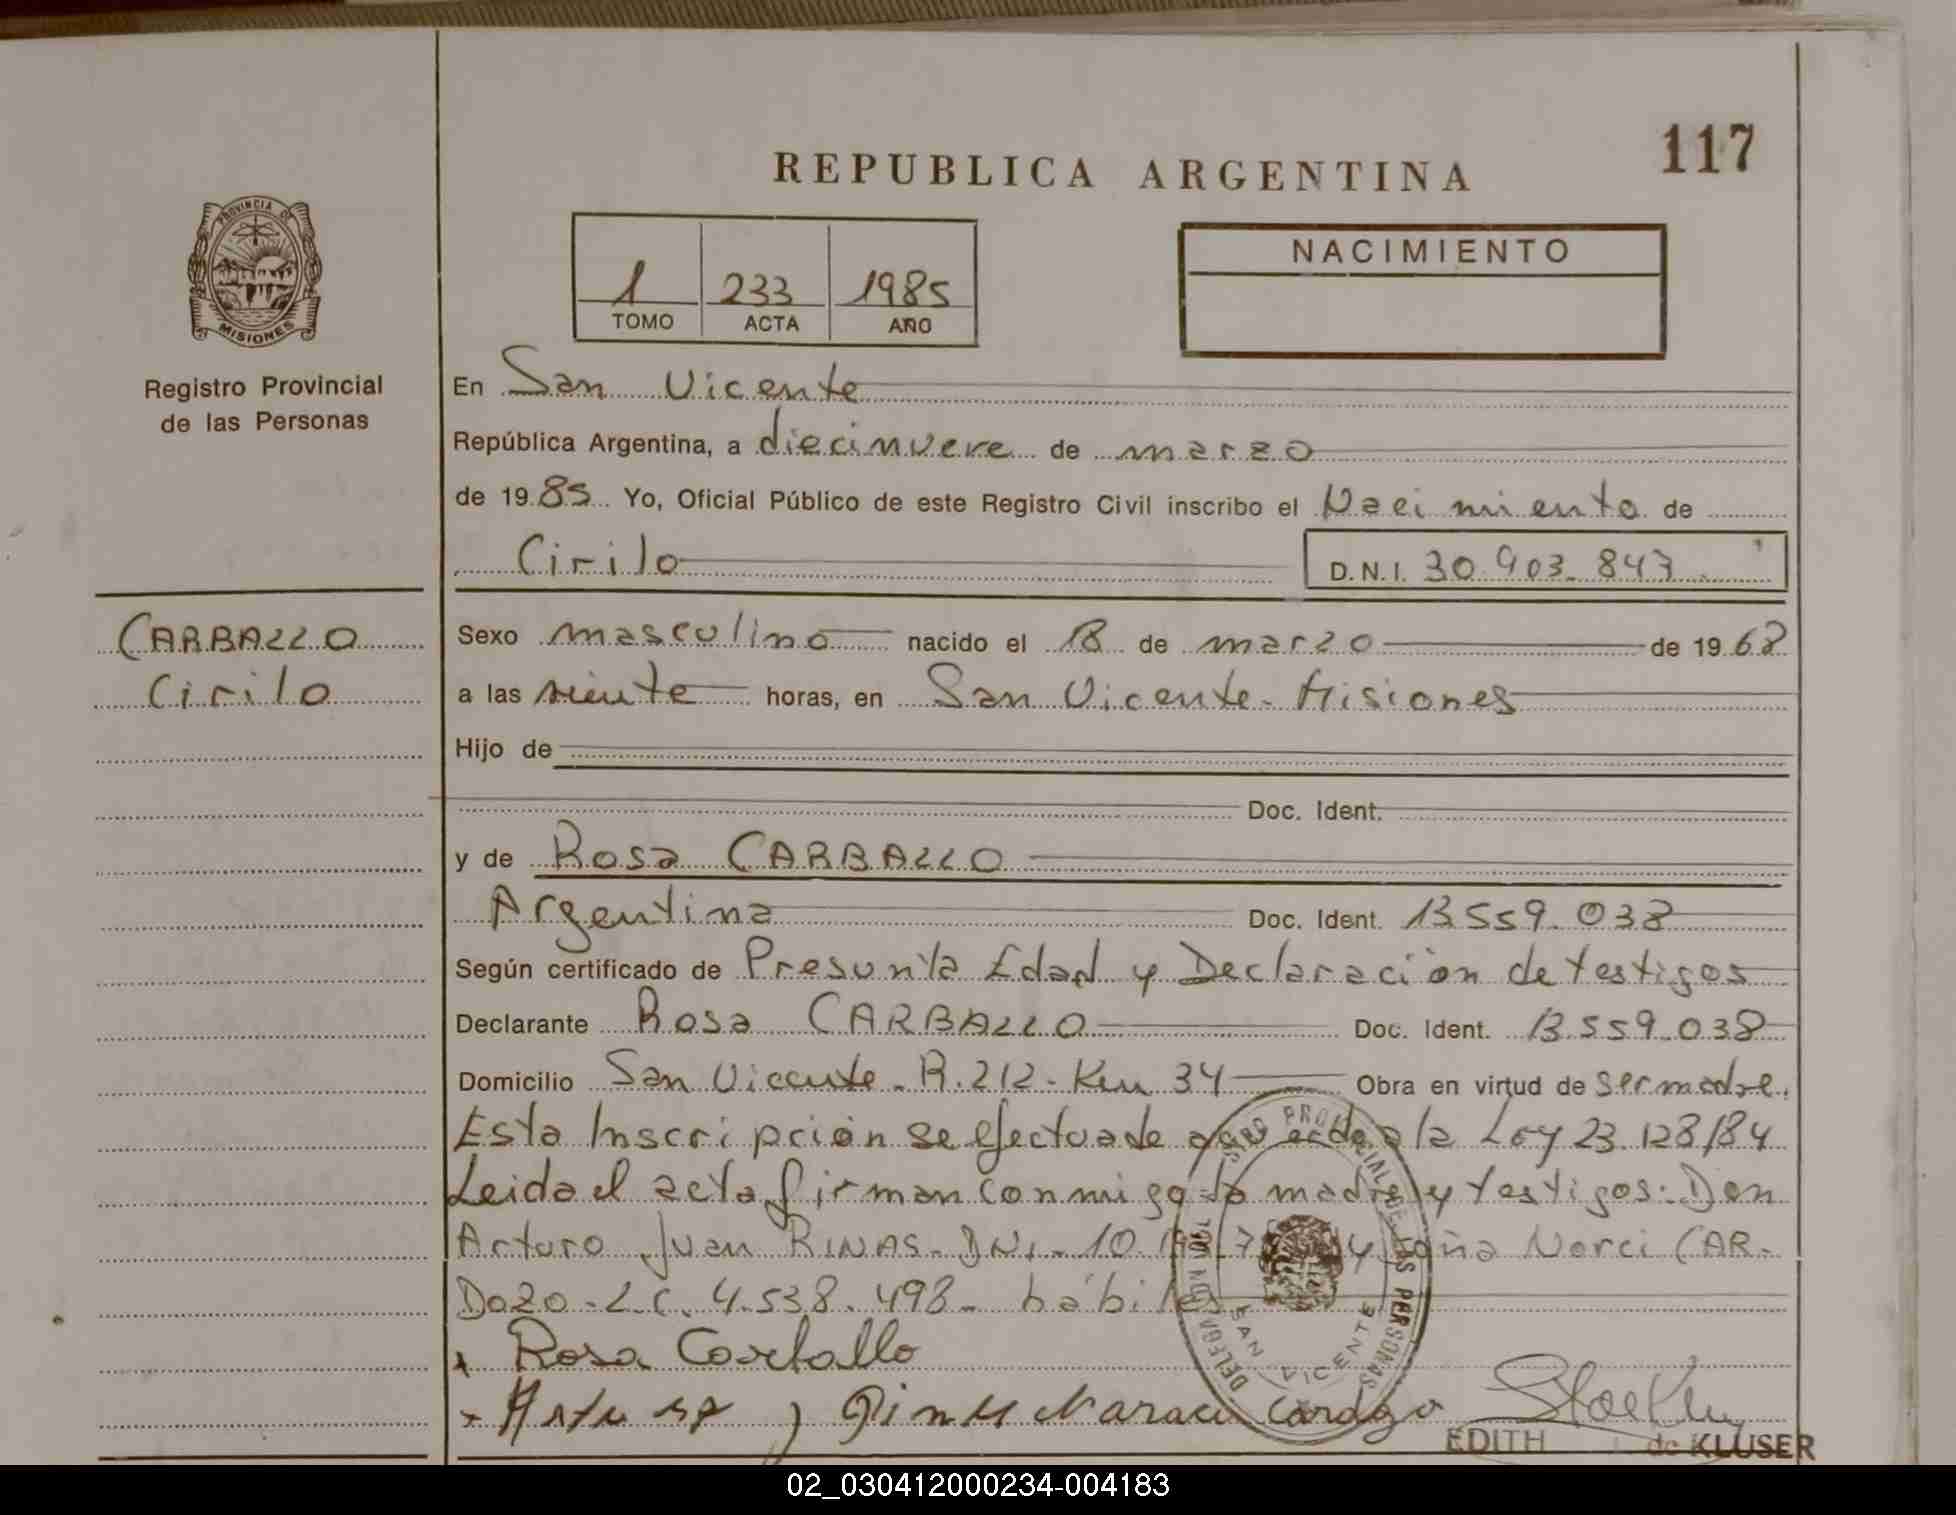 117
REPUBLICA ARGENTINA
PROVINCIA DE
MISIONES
Registro Provincial
de las Personas
1 233 1985
TOMO ACTA AÑO
NACIMIENTO
En San Vicente
República Argentina, a diecinueve de marzo
de 1985 Yo, Oficial Público de este Registro Civil inscribo el Nacimiento de
Cirilo D.N.I. 30.903.843
CARBALLO
Cirilo
Sexo masculino nacido el 18 de marzo de 1968
a las siente horas, en San Vicente - Misiones
Hijo de
Doc. Ident.
y de Rosa CARBALLO
Argentina Doc. Ident. 13.559.038
Según certificado de Presunta Edad y Declaración de testigos
Declarante Rosa CARBALLO Doc. Ident. 13.559.038
Domicilio San Vicente - R. 212 - Km 34 Obra en virtud de ser madre.
Esta Inscripción se efectua de acuerdo a la Ley 23.128/84
Leida el acta firman conmigo la madre y testigos: Don
Arturo Juan RINAS - DNI - 10 y doña Norci CAR-
DOZO - L.C. 4.538.498 - hábiles
Rosa Carballo
Cardozo
PROVINCIAL DE LAS PERSONAS
DELEGACION
SAN VICENTE
EDITH de KLUSER
02_030412000234-004183